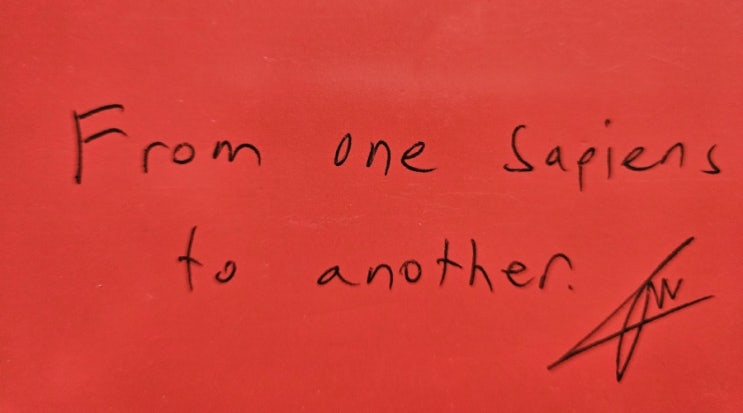 From one Sapiens
to another.